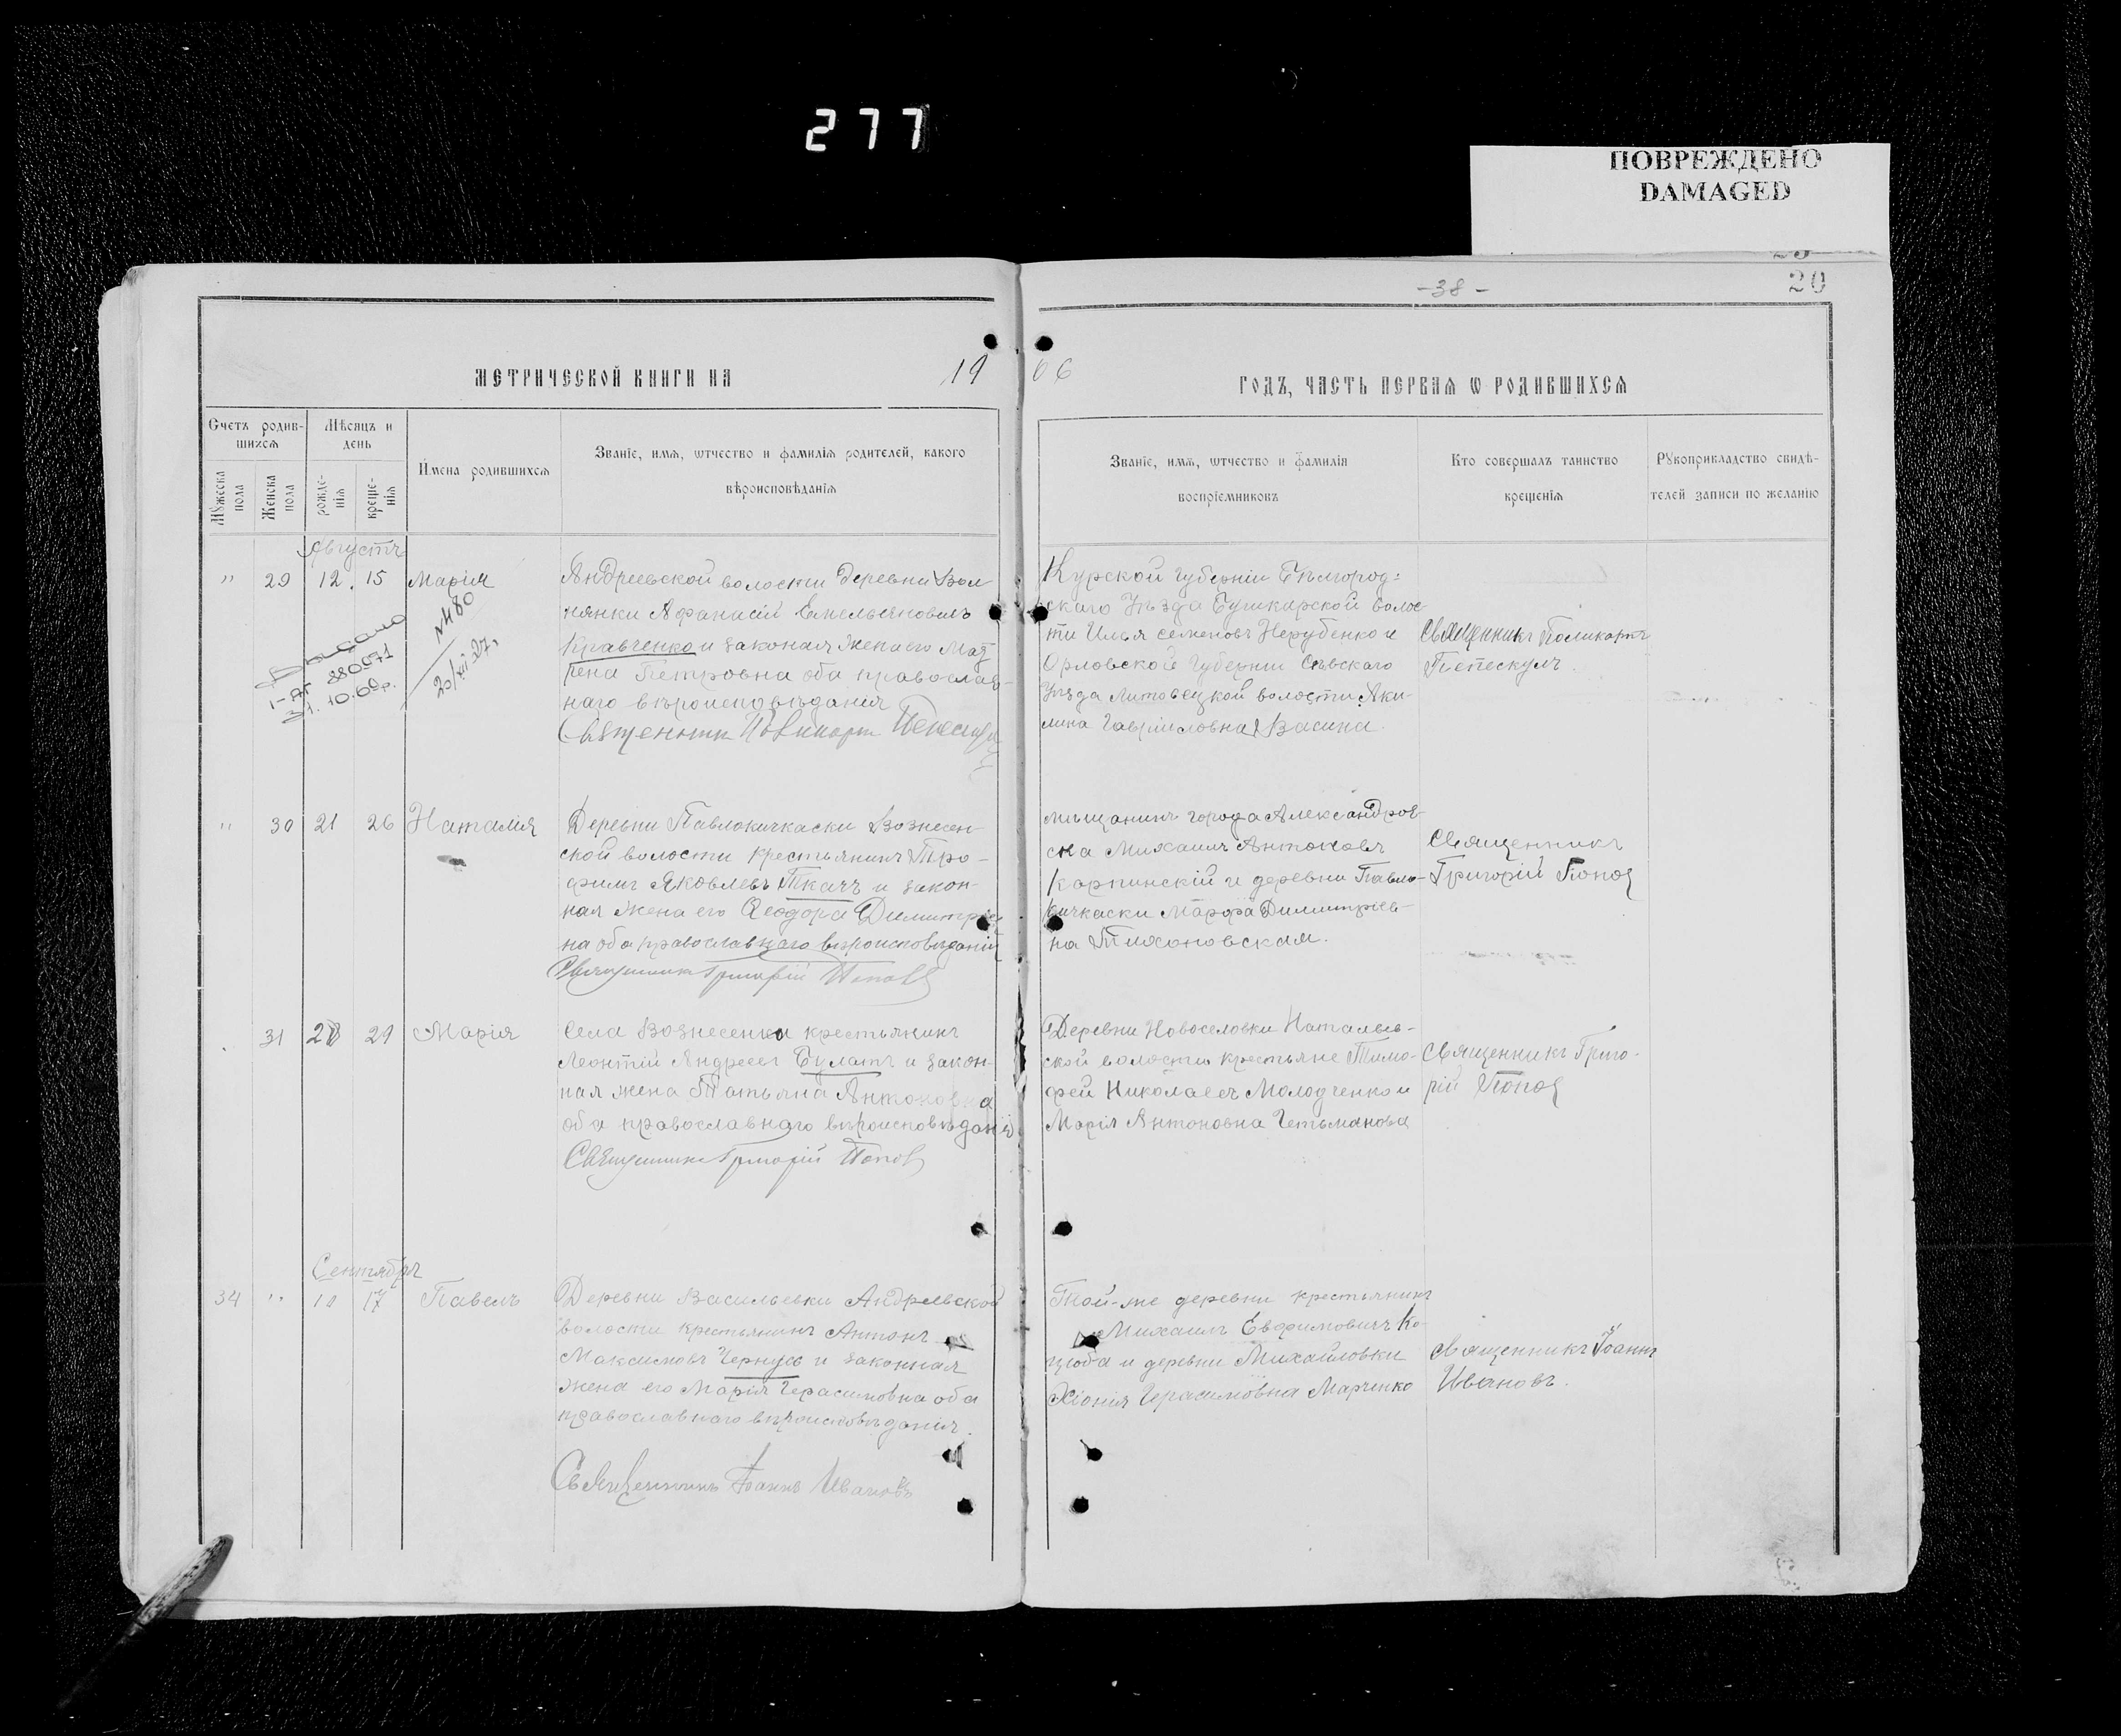 277
ПОВРЕЖДЕНО
DAMAGED
20
-38-
МЕТРИЧЕСКОЙ КНИГИ НА
19
06
ГОДЪ, ЧАСТЬ ПЕРВАЯ Ѡ РОДИВШИХСЯ
Счетъ родив-
шихся
Мѣсяцъ и
день
Мужеска
пола
Женска
пола
рожде-
нія
креще-
нія
Имена родившихся
Званіе, имя, ѡтчество и фамилія родителей, какого
вѣроисповѣданія
Званіе, имя, ѡтчество и фамилія
воспріемниковъ
Кто совершалъ таинство
крещенія
Рукоприкладство свидѣ-
телей записи по желанію
Августъ
" 29 12. 15 Марія
№480
20/XII 27,
880071
31.10.60г.
Андреевской волости деревни Вол-
нянки Афанасій Емельяновичъ
Кравченко и законая жена его Мат-
рена Петровна оба православ-
наго вѣроисповѣданія
Священникъ Поликарпъ Пепескулъ
Курской губерніи Бѣлгород-
скаго уѣзда волос-
ти Илья Семеновъ Нерубенко и
Орловской губерніи Сѣвскаго
уѣзда Литовецкой волости Аки-
лина Гавриловна Васина.
Священникъ Поликарпъ
Пепескулъ.
" 30 21 26 Наталія
Деревни Павлокичкаски Вознесен-
ской волости крестьянинъ Тро-
фимъ Яковлевъ Ткачъ и закон-
ная жена его Ѳеодора Димитріев-
на оба православнаго вѣроисповѣданія
Священникъ Григорій Поповъ
мѣщанинъ города Александров-
ска Михаилъ Антоновъ
Карпинскій и деревни Павло-
кичкаски Марфа Димитріев-
на Тихоновская.
Священникъ
Григорій Поповъ
31 28 29 Марія
Села Вознесенки крестьянинъ
Леонтій Андреевъ Булатъ и закон-
ная жена Татьяна Антоновна
оба православнаго вѣроисповѣданія
Священникъ Григорій Поповъ
Деревни Новоселовки Натальев-
ской волости крестьяне Тимо-
фей Николаевъ Молодченко и
Марія Антоновна Гетьманова
Священникъ Григо-
рій Поповъ
Сентября
34 " 10 17 Павелъ
Деревни Васильевки Андреевской
волости крестьянинъ Антонъ
Максимовъ Чернусь и законная
жена его Марія Герасимовна оба
православнаго вѣроисповѣданія.
Священникъ Іоаннъ Ивановъ
Той-же деревни крестьянинъ
Михаилъ Евфимовичъ Ко-
цюба и деревни Михайловки
Хіонія Герасимовна Марченко
Священникъ Іоаннъ
Ивановъ.